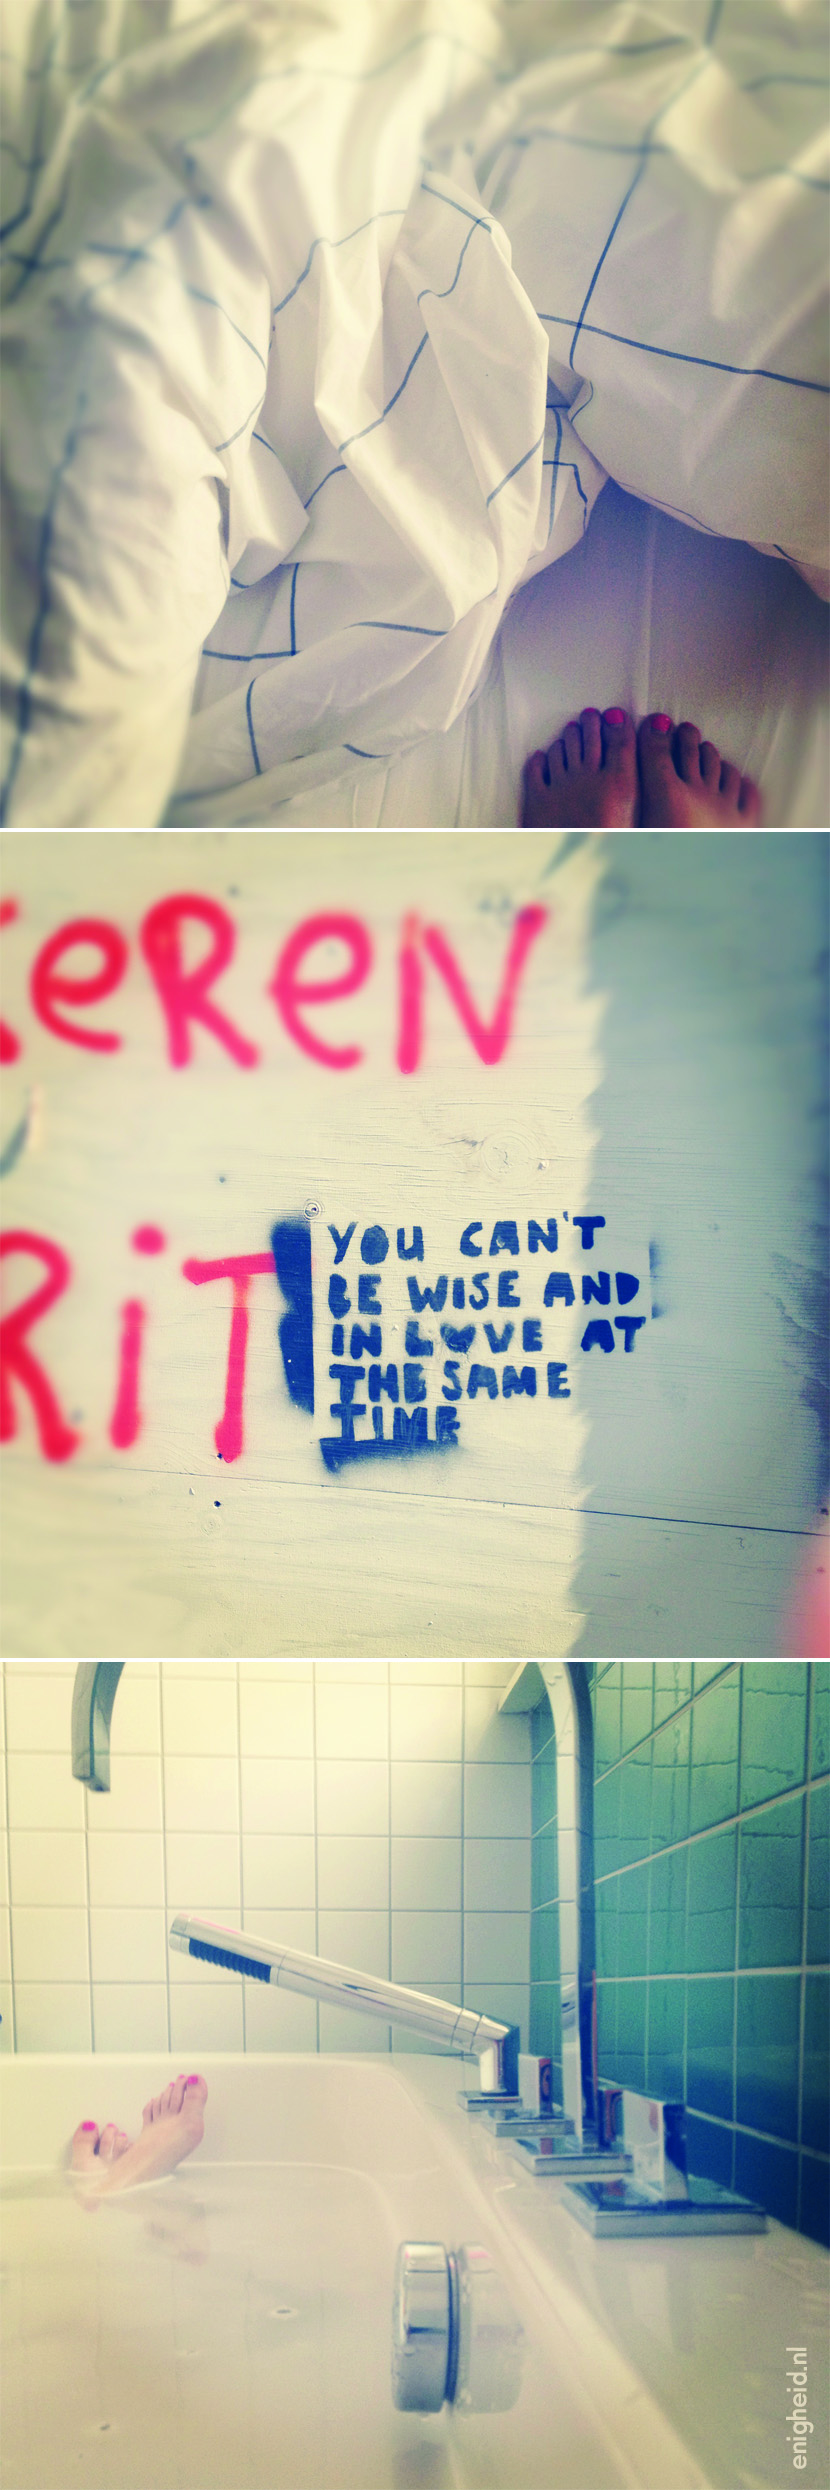 eREN
RiT
YOU CAN'T
BE WISE AND
IN LOVE AT
THE SAME
TIME
enigheid.nl